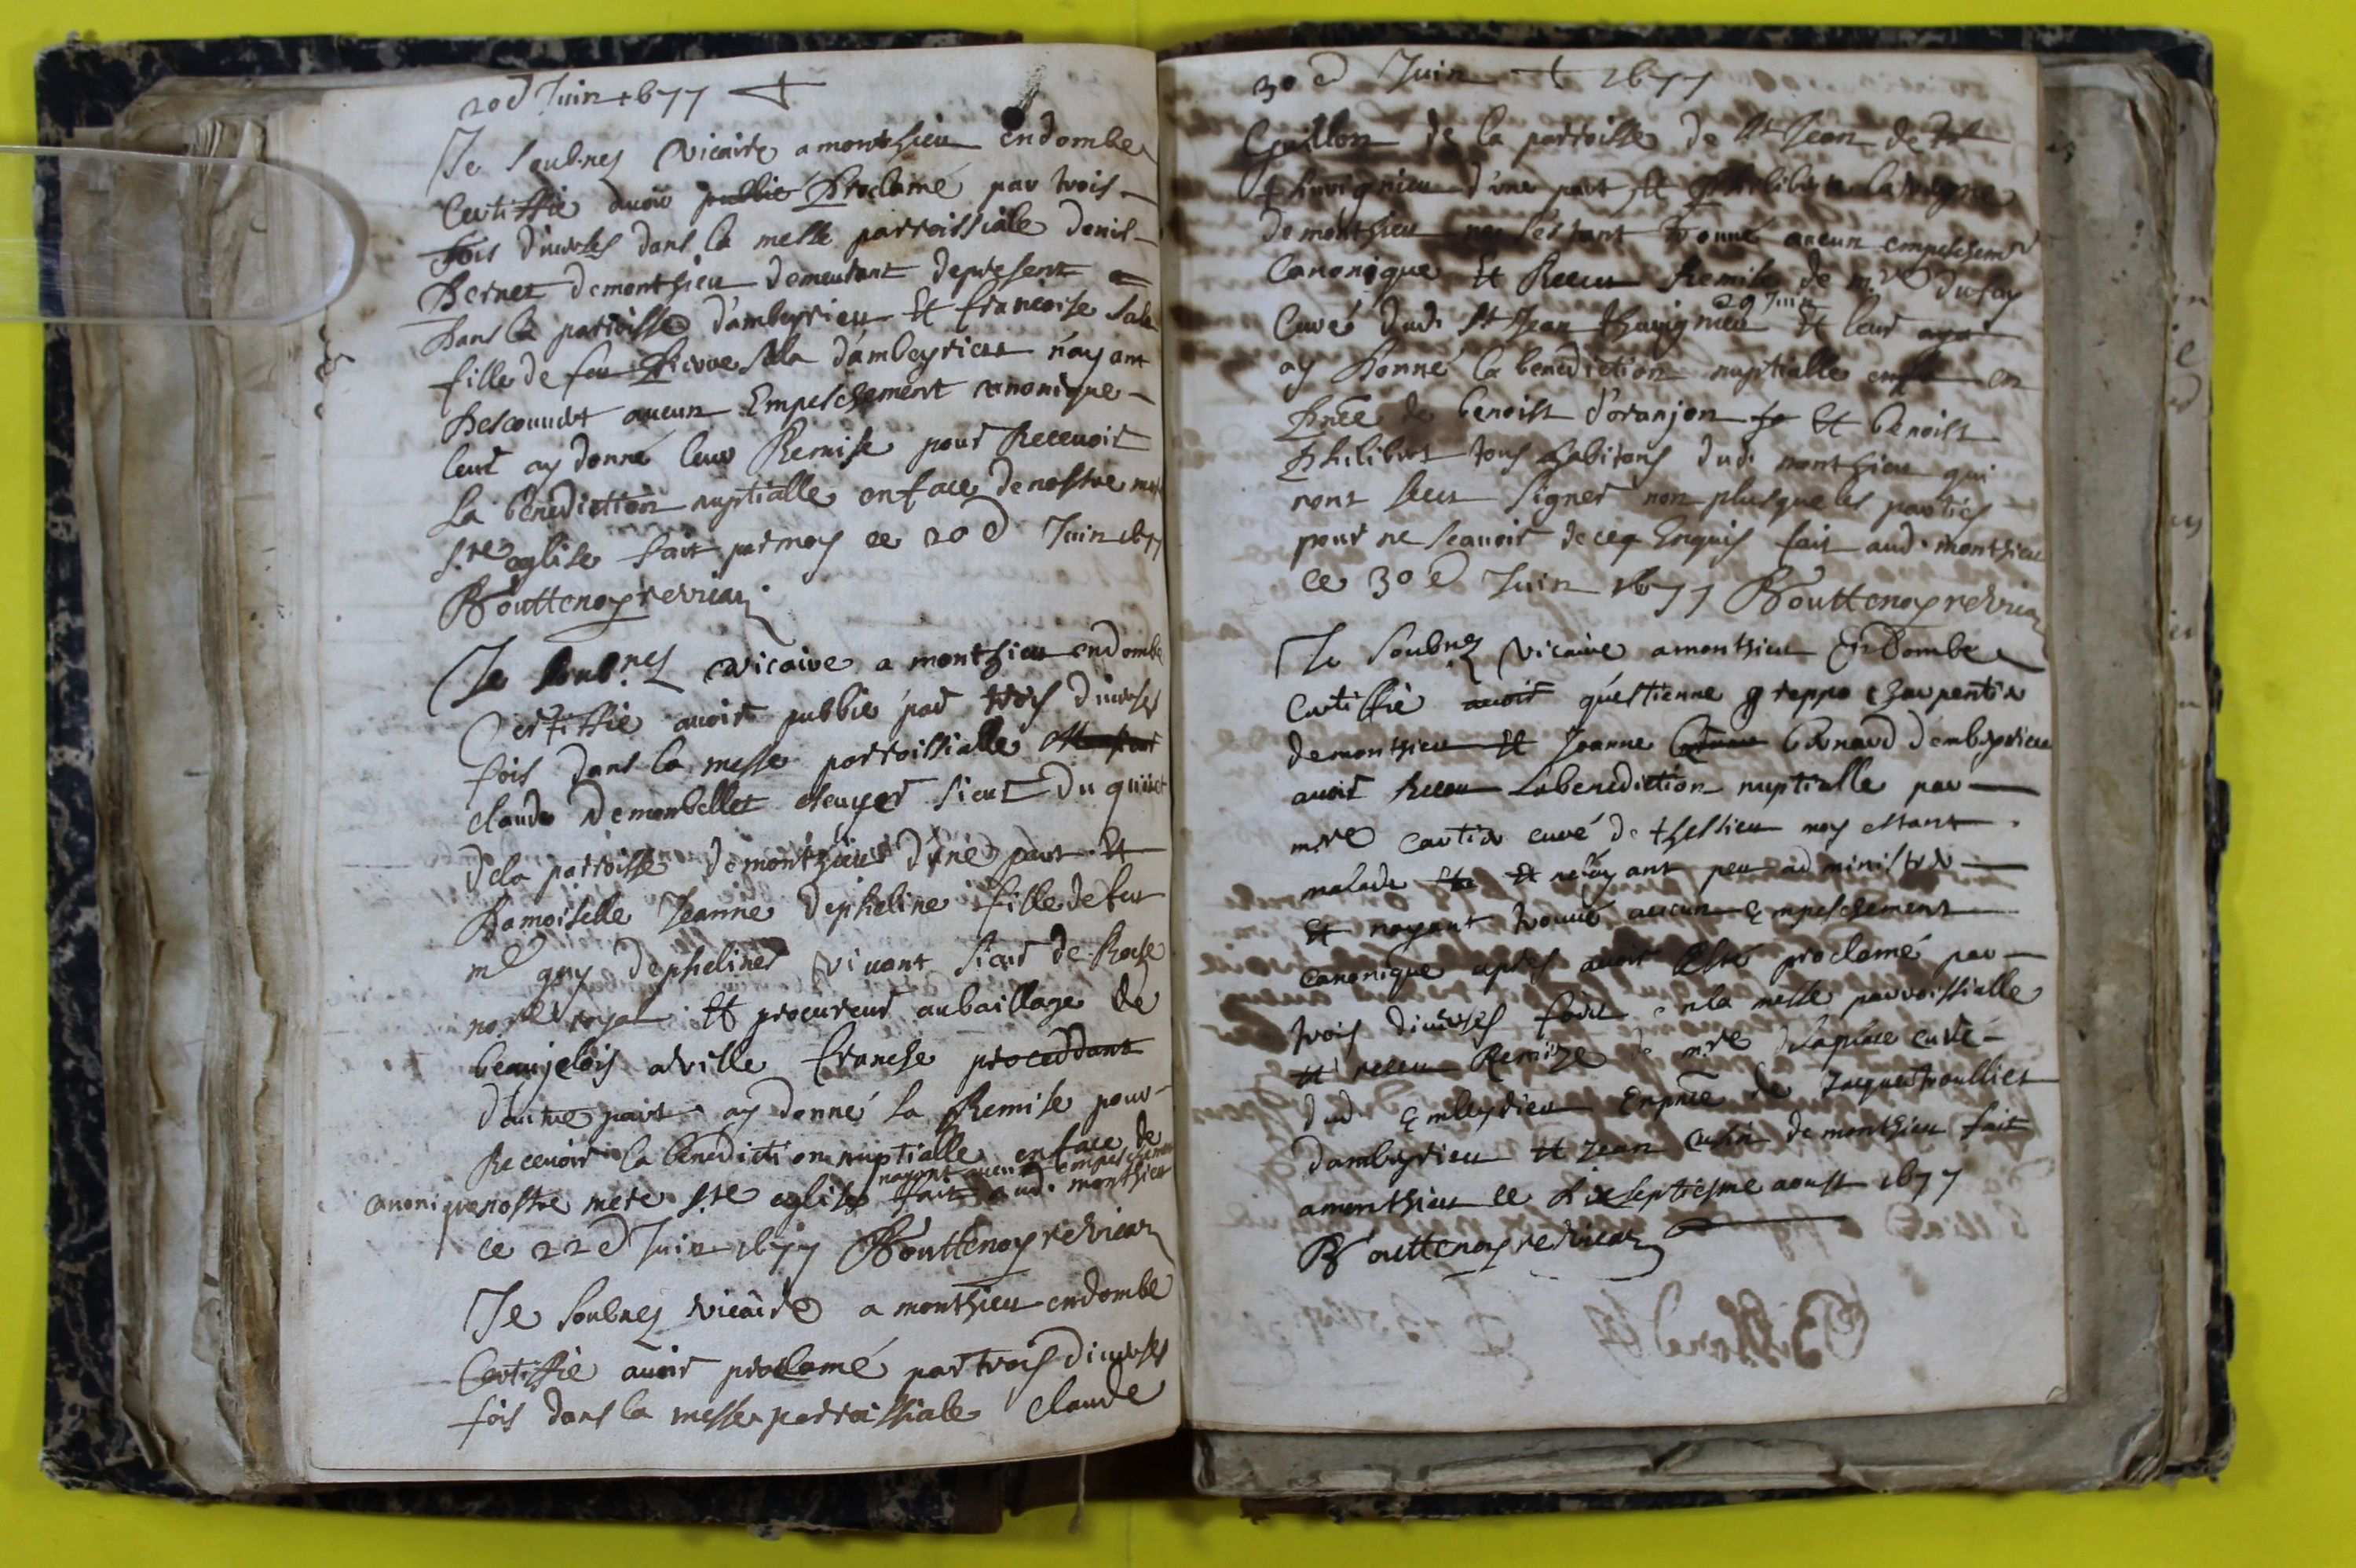 20e Juin 1677 +
Je soubnez vicaire a monthieu en dombe
Certiffie auoir publié proclamé par trois
fois diuerses dans la messe parroissiale denis
Bernet de monthieu demeurant de present
dans la parroisse d'ambeyrieu et francoise Sala
fille de feu Pierre Sala d'ambeyrieu n'ayant
descouuert aucun Empeschement canonique
leur ay donné leur Remise pour Receuoir
La benediction nuptialle en face de nostre mere
s.te eglise fait par moy ce 20e Juin 1677
Bouttenoy pre vicair
Je soub.nez vicaire a monthieu en dombe
Certiffie auoir publié par trois diuerses
fois dans la messe parroissialle
claude de monbellet escuyer sieur du
de la parroisse de monthieu d'une part Et
damoiselle Jeanne d'epheline fille de feu
me guy d'ephelines viuant sieur de Roche
no.re royal et procureur au baillage de
beaujolois a ville franche proceddant
d'autre part ay donné la Remise pour
Receuoir la benediction nuptialle en face de
nayant aucun empeschement
canonique nostre mere s.te eglise fait aud. monthieu
ce 22e Juin 1677 Bouttenoy pre vicair
Je soubnez vicaire a monthieu en dombe
Certiffie auoir proclamé par trois diuerses
fois dans la messe parroissiale claude
30e Juin + 1677
Guillon de la parroisse de st Jean de
thurigneu d'une part et philiberte
de monthieu ne s'estant trouué aucun empeschemt
Canonique et Receu Remise de m.re dufay
29 Juin
Curé dud. st Jean thurigneu et leur
ay donné la benediction nuptialle en
pnce de benoist d'oranjon et benoist
philibert tous habitans dud. monthieu qui
nont sceu signer non plus que les parties
pour ne scauoir de ceq Enquis fait aud. monthieu
ce 30e Juin 1677 Bouttenoy pre vicair
Je soubnez vicaire a monthieu En Dombe
Certiffie auoir qu'estienne greppo charpentier
de monthieu et Jeanne bernard d'embeyrieu
auoir Receu la benediction nuptialle par
m.re cartier curé de thessieu moy estant
malade et ne l'ayant peu administrer
et nayant trouué aucun empeschement
canonique apres auoir esté proclamé par
trois diuerses fois en la messe parroissialle
et receu Remize de m.re delaplace curé
dud. embeyrieu En pnce de Jacques troullier
d'ambeyrieu et Jean cusin de monthieu fait
a monthieu ce dixseptiesme aoust 1677
Bouttenoy pre vicair